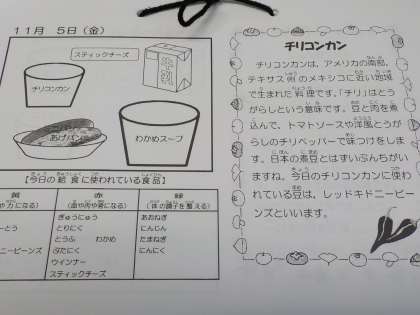 11月 5日(金)
スティックチーズ
チリコンカン
あげパン
わかめスープ
【今日の給食に使われている食品】
黄 赤 緑
(血や肉や骨になる) (体の調子を整える)
ぎゅうにゅう あおねぎ
とりにく にんじん
とうふ わかめ たまねぎ
ぶたにく にんにく
ウインナー
スティックチーズ
チリコンカン
チリコンカンは、アメリカの南部、
テキサス州のメキシコに近い地域
で生まれた料理です。「チリ」はとう
がらしという意味です。豆と肉を煮
込んで、トマトソースや洋風とうが
らしのチリペッパーで味つけをしま
す。日本の煮豆とはずいぶんちがい
ますね。今日のチリコンカンに使わ
れている豆は、レッドキドニービー
ンズといいます。